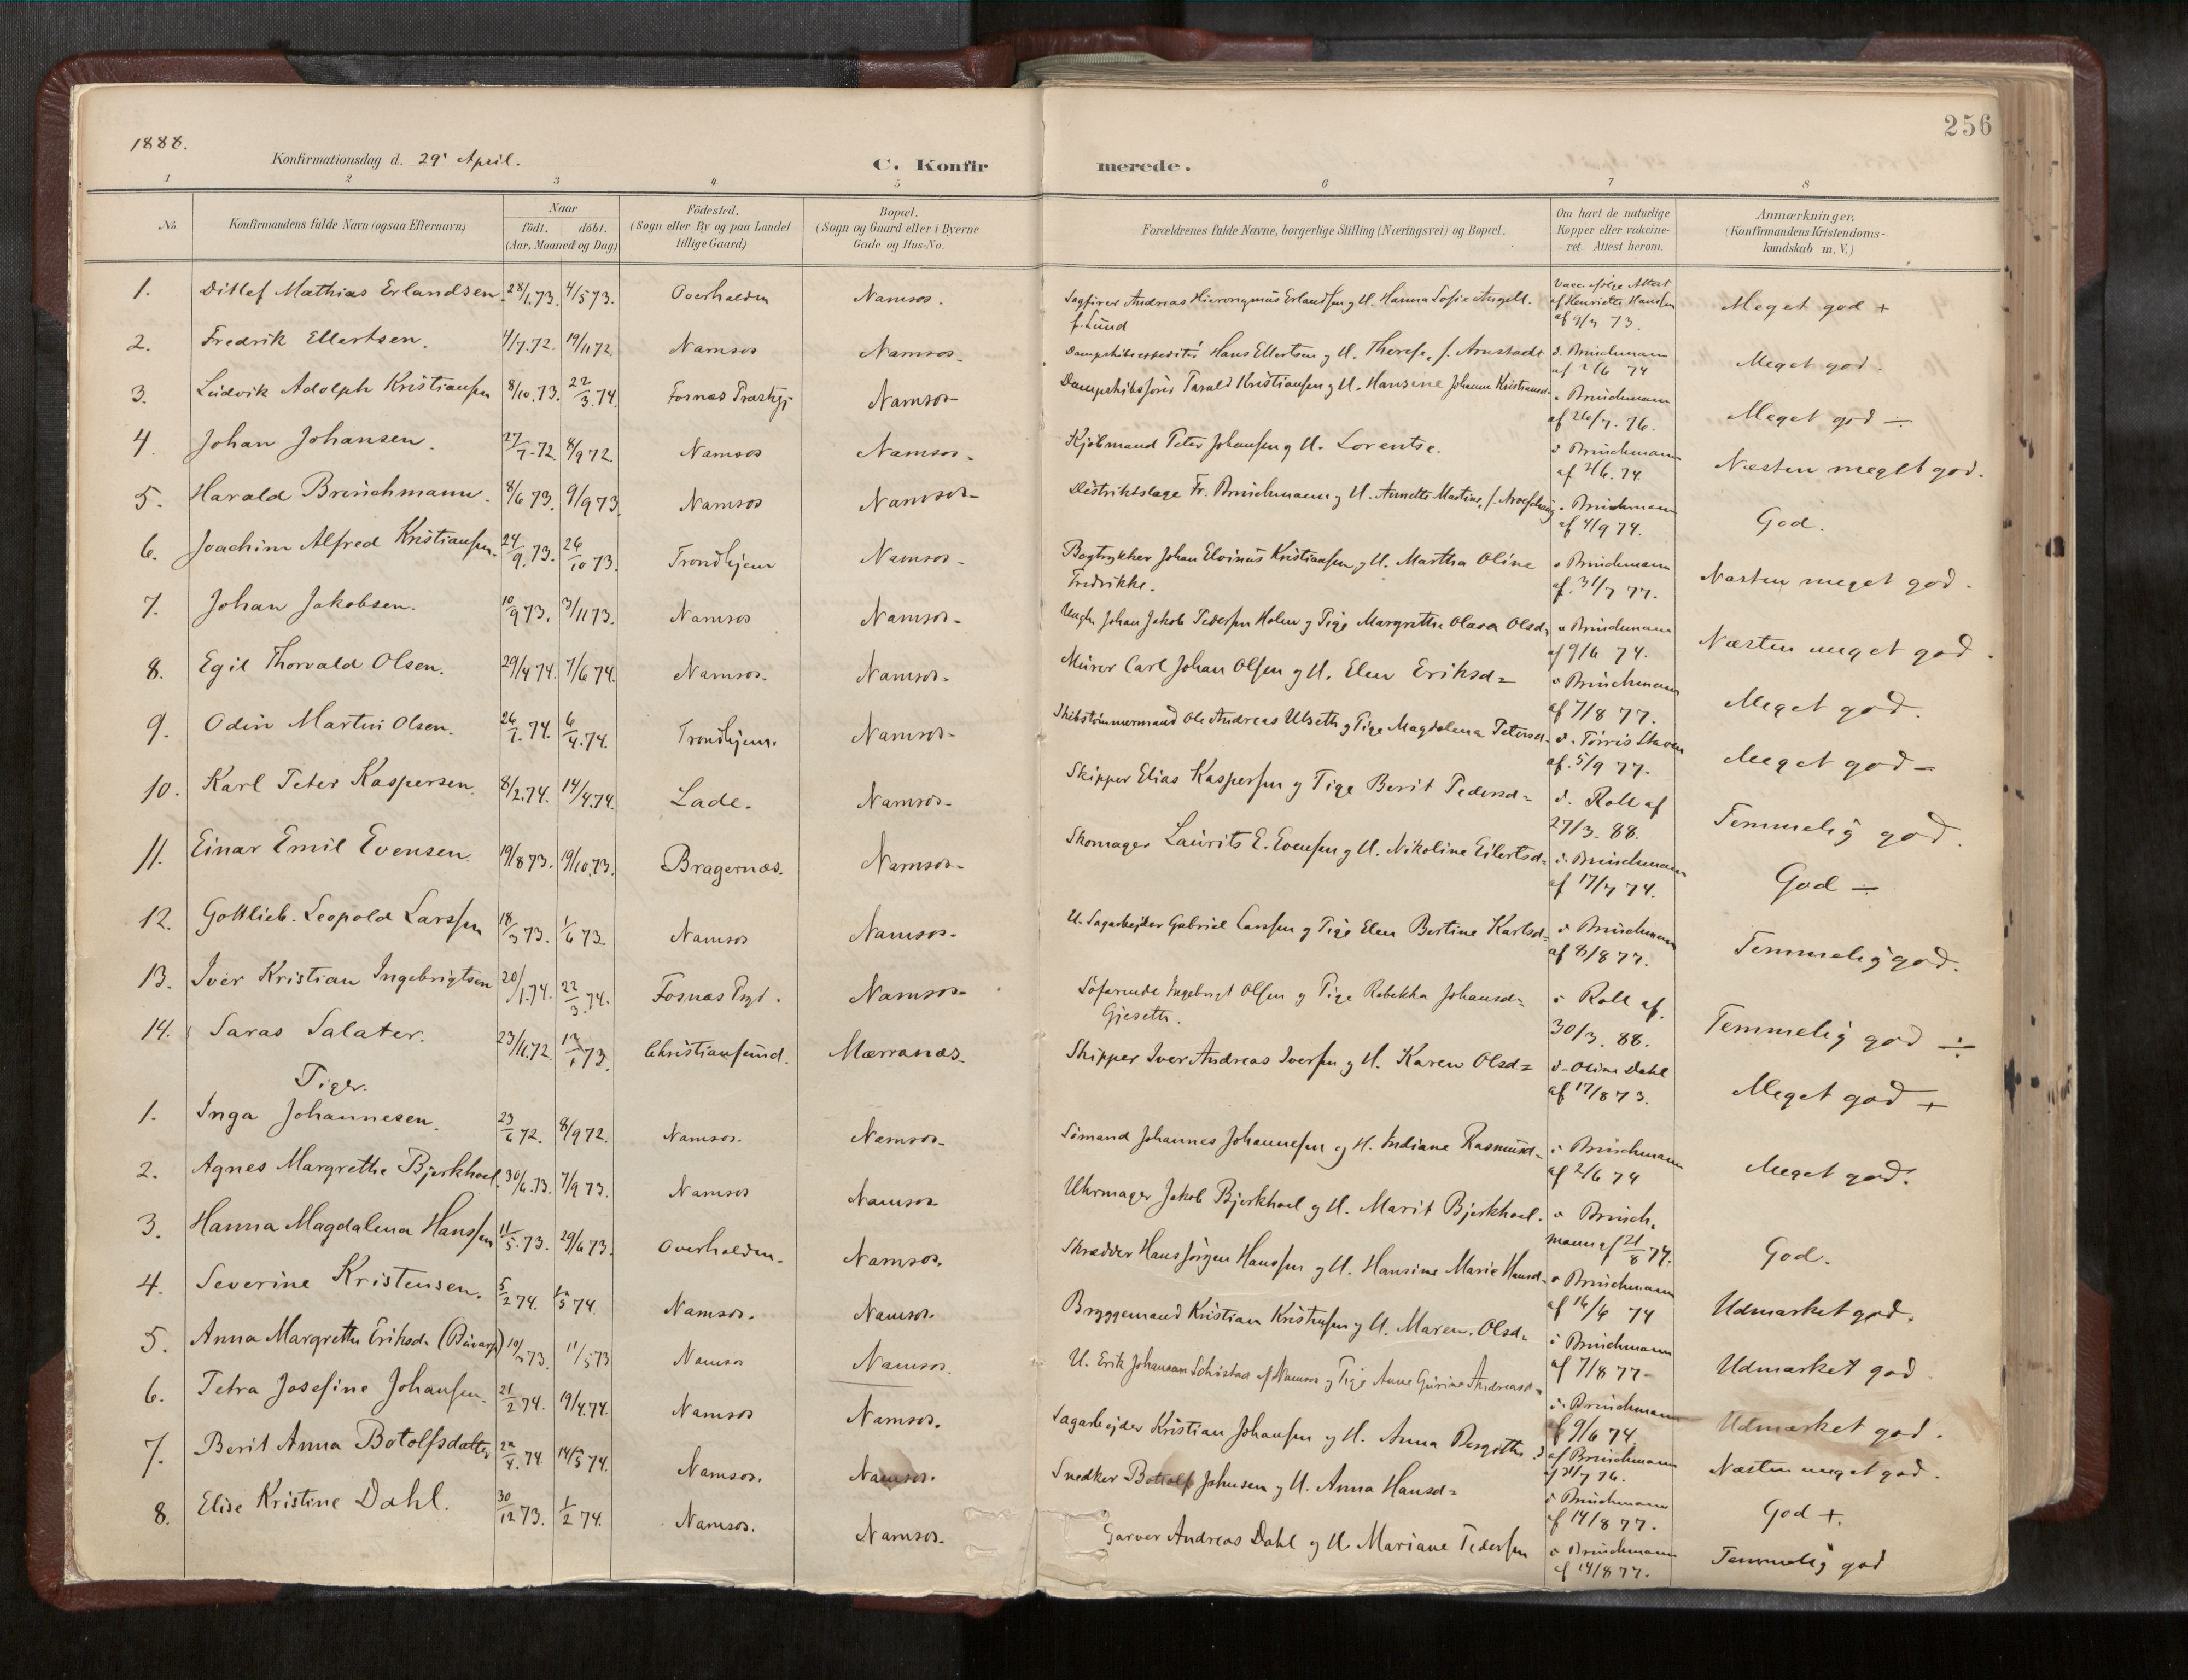 256
1888.
Konfirmationsdag d. 29' April.
C. Konfirmerede.
1 2 3 4 5 6 7 8
No. Konfirmandens fulde Navn (ogsaa Efternavn) Naar födt. döbt. (Aar, Maaned og Dag) Födested. (Sogn eller By og paa Landet tillige Gaard) Bopæl. (Sogn og Gaard eller i Byerne Gade og Hus-No. Forældrenes fulde Navne, borgerlige Stilling (Næringsvei) og Bopæl. Om havt de naturlige Kopper eller vakcineret. Attest herom. Anmærkninger, (Konfirmandens Kristendomskundskab m. V.)
1. Ditlef Mathias Erlandsen. 28/1.73. 4/5 73. Overhalden Namsos. Andreas Hieronymus Erlandsen g H. Hanna Sofie Angell. Attest af Henriette Hansen Meget god +
f. Lund af 9/7 73.
2. Fredrik Ellertsen. 4/7.72. 19/11 72. Namsos Namsos. Hans Ellertsen g H. Therese, f. Arnstadt d. Brüschmann af 2/6 74 Meget god.
3. Ludvik Adolph Kristiansen 8/10.73. 22/3.74. Fosnæs Præstgj. Namsos Tarald Kristiansen g H. Hansine Johanne Kristiansd. Brüschmann af 26/7.76. Meget god ÷
4. Johan Johansen. 27/7.72. 8/9 72. Namsos Namsos. Kjöbmand Peter Johansen g H. Lorentse. d Brüschmann af 2/6.74. Næsten meget god.
5. Harald Brüschmann. 8/6 73. 9/9 73. Namsos Namsos Distriktslæge Fr. Brüschmann g H. Annette Martine, f. Brüschmann af 4/9 74. God.
6. Joachim Alfred Kristiansen. 24/9.73. 26/10 73. Trondhjem Namsos. Bogtrykker Johan Elvinus Kristiansen g H. Martha Oline Brüschmann Næsten meget god.
Fredrikke. af. 31/7 77.
7. Johan Jakobsen. 10/9 73. 3/11 73. Namsos Namsos. Ungk. Johan Jakob Pedersen Holm g Pige Margrethe Olava Olsd. Brüschmann af 9/6 74. Næsten meget god.
8. Egil Thorvald Olsen. 29/4 74. 7/6 74. Namsos. Namsos. Mürer Carl Johan Olsen g H. Elen Eriksd= Brüschmann af 7/8 77. Meget god.
9. Odin Martin Olsen. 26/1.74. 6/4.74. Trondhjem. Namsos. Skibstömmermand Ole Andreas Ulseth g Pige Magdalena Petersd. d. Tørris Staven af. 5/9 77. Meget god -
10. Karl Peter Kaspersen. 8/2.74. 14/4.74. Lade. Namsos. Skipper Elias Kaspersen g Pige Berit Pedersd= d. Roll af 27/3. 88. Temmelig god.
11. Einar Emil Evensen. 19/8 73. 19/10.73. Bragernæs. Namsos. Skomager Laurits E. Evensen g H. Nikoline Eilertsd= Brüschmann af 17/7 74. God ÷
12. Gottlieb. Leopold Larssen 18/3 73. 1/6 73. Namsos Namsos. U. Sagarbejder Gabriel Larssen g Pige Elen Bertine Karlsd= d Brüschmann af 8/8 77. Temmelig god.
13. Iver Kristian Ingebrigtsen 20/1.74. 22/3.74. Fosnæs Namsos. Söfarende Ingebrigt Olsen g Pige Rebekka Johansd= Roll af. Temmelig god ÷
Gjeseth. 30/3. 88.
14. Saras Salater. 23/11.72. Christiansund. Mærranæs. Skipper Iver Andreas Iversen g H. Karen Olsd= d. Oline Dahl af 17/8 73. Meget god +
Piger.
1. Inga Johannesen. 23/6 72. 8/9 72. Namsos. Namsos. Sömand Johannes Johannesen g H. Indiane Rasmusd= Brüschmann af 2/6 74 Meget god.
2. Agnes Margrethe Bjerkhoel. 30/6.73. 7/9 73. Namsos Namsos Uhrmager Jakob Bjerkhoel g H. Marit Bjerkhoel. Brüschmann af 21/8 77. God.
3. Hanna Magdalena Hanssen 11/5.73. 29/6 73. Overhalden. Namsos. Skrædder Hans Jörgen Hanssen g H. Hansine Marie Hansd. Brüschmann af 16/6 74 Udmærket god.
4. Severine Kristensen. 5/2 74. Namsos. Namsos. Bryggemand Kristian Kristensen g H. Maren. Olsd= Brüschmann af 7/8 77. Udmærket god
5. Anna Margrethe Eriksd. 73. 11/5 73 Namsos Namsos. U. Erik Johansen Schistad af Namsos g Pige Anne Gurine Andreasd= Brüschmann af 9/6 74. Udmærket god.
6. Petra Josefine Johansen. 21/2 74. 19/4.74. Namsos Namsos. Sagarbejder Kristian Johansen g H. Anna Bergitte af Brüschmann 76. Næsten meget god.
7. Berit Anna Botolfsdatter 74. 14/5 74. Namsos. Namsos. Snedker Botolf Johnsen g H. Anna Hansd= Brüschmann af 14/8 77. God +.
8. Elise Kristine Dahl. 30/12 73. 1/2 74. Namsos. Namsos. Garver Andreas Dahl g H Mariane Pedersen Brüschmann af 14/8 77. Temmelig god